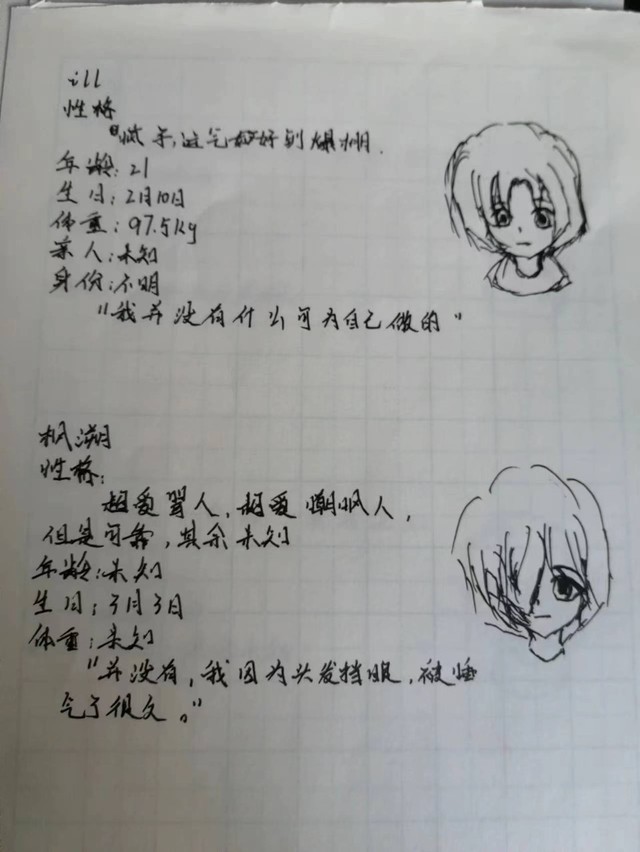 ill
性格
年龄：21
生日：2月10日
体重：97.5kg
亲人：未知
身份：不明
"我并没有什么可为自己做的"
枫溯
性格：
超爱骂人，超爱嘲讽人，
但是可靠，其余未知
年龄：未知
生日：3月3日
体重：未知
"并没有，我因为头发挡眼，被
气了很久。"